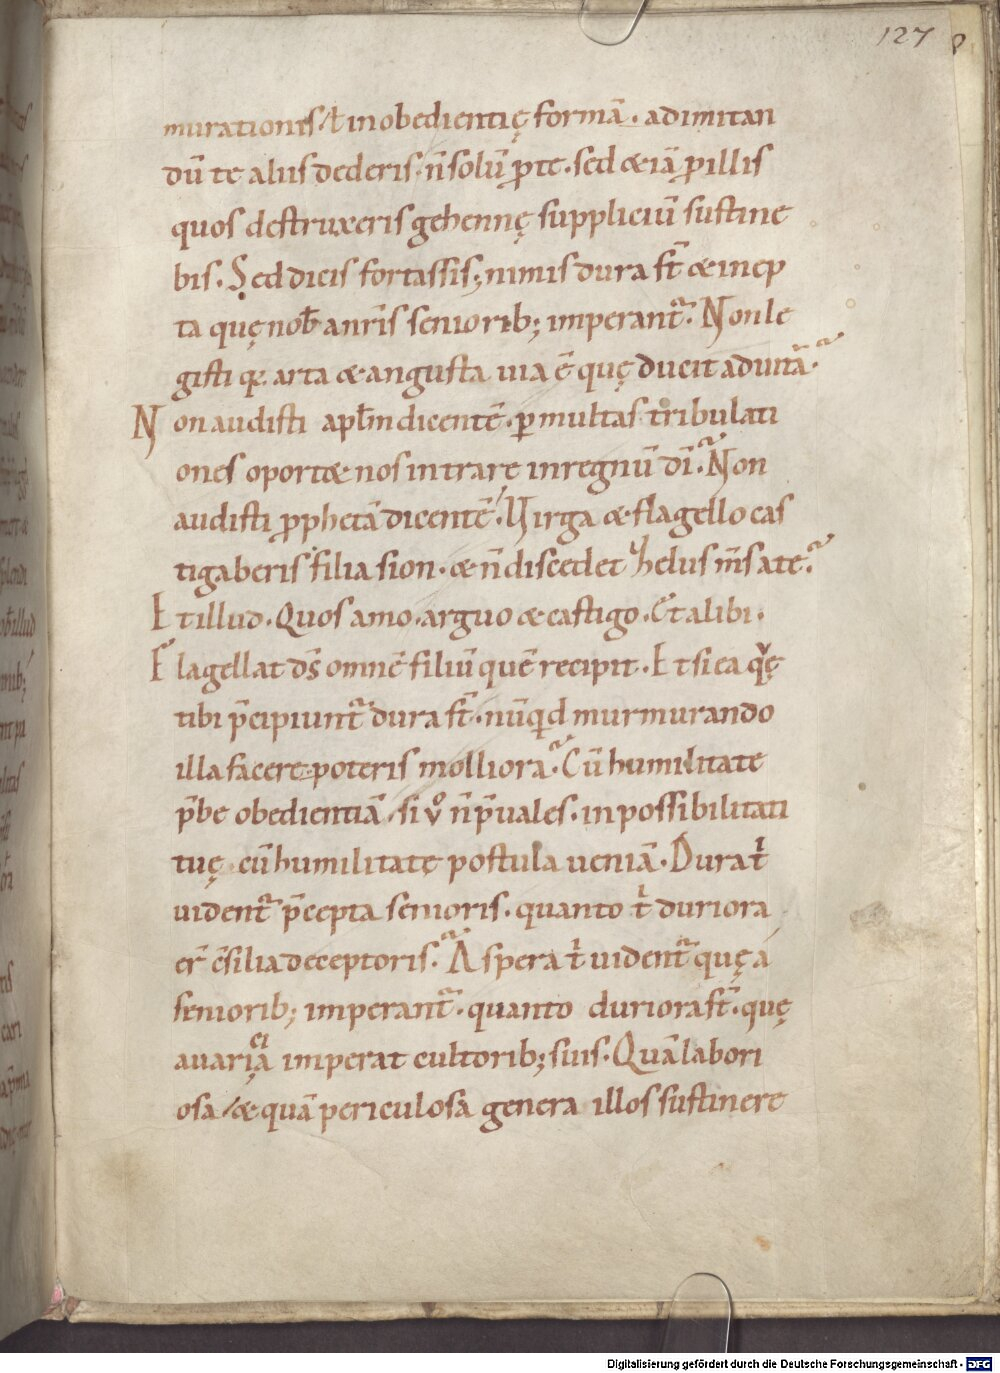 127
murationis / ł inobedientię formā . adimitan
dū te aliis dederis . n̄ solū ꝓ te . sed & iā ꝓ illis
quos destruxeris gehennę suppliciū sustine
bis . Sed dicis fortassis ; nimis dura sī & inep
ta quę nob̄ anr̄is seniorib; imperant̄ . Non le
gisti qꝫ arta & angusta uia ē quę ducit aduitā .
Non audisti apłm dicentē . ꝑ multas tribulati
ones oport& nos intrare inregnū dī . Non
audisti ꝓphetā dicentē . Uirga & flagello cas
tigaberis filia sion . & n̄ discedet helus m̄s ate .
Et illud . Quos amo . arguo & castigo . Et alibi .
Flagellat d̄s omnē filiū quē recipit . Et si ea quę
tibi p̄cipiunt̄ dura sī . nūqd murmurando
illa facere poteris molliora . Cū humilitate
p̄be obedientiā . si v̊ n̄ p̄uales . inpossibilitati
tuę cū humilitate postula ueniā . Dura t̄
uident̄ p̄cepta senioris . quanto t̄ duriora
er̄ c̄silia deceptoris . Aspera t̄ uident̄ quę á
seniorib; imperant̄ . quanto duriora sī . quę
auaricia imperat cultorib; suis . Quā labori
osa / & quā periculosa genera illos sustinere
Digitalisierung gefördert durch die Deutsche Forschungsgemeinschaft - DFG